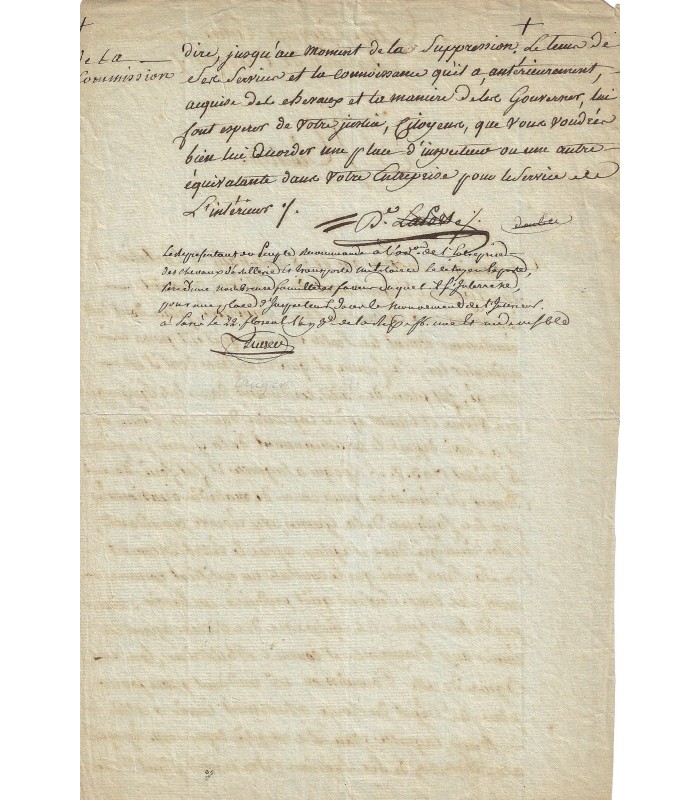 de La
Commission
dire, jusqu'au moment de la Suppression. Le tems de
Ses Services et la connoissance qu'il a, antérieurement,
acquise des chevaux et la maniere de les Gouverner, lui
font esperer de Votre justice, Citoyens, que Vous Voudrés
bien lui accorder une place d'inspecteur ou une autre
équivalante dans Votre Entreprise pour le Service de
L'intérieur ./.
Le Representant du Peuple recommande à de l'Entreprise
des chevaux d'artillerie et transports militaires le citoyen Laporte,
père d'une nombreuse famille en faveur duquel il s'interesse,
pour une place d'Inspecteur dans le mouvement de l'Interieur.
à Paris le 22. floreal L'an 3e. de la Rep. fr. une et indivisible
Auger
Auger